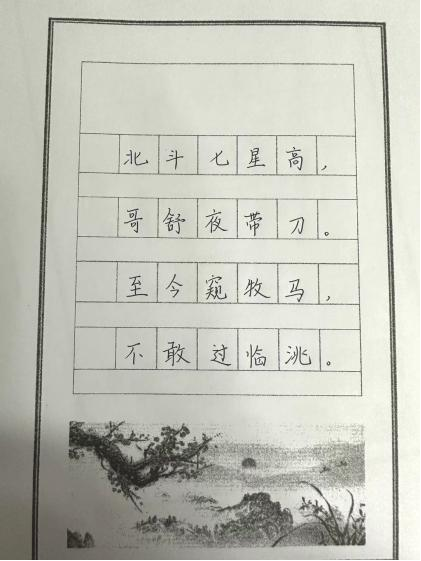 北斗七星高，
哥舒夜带刀。
至今窥牧马，
不敢过临洮。